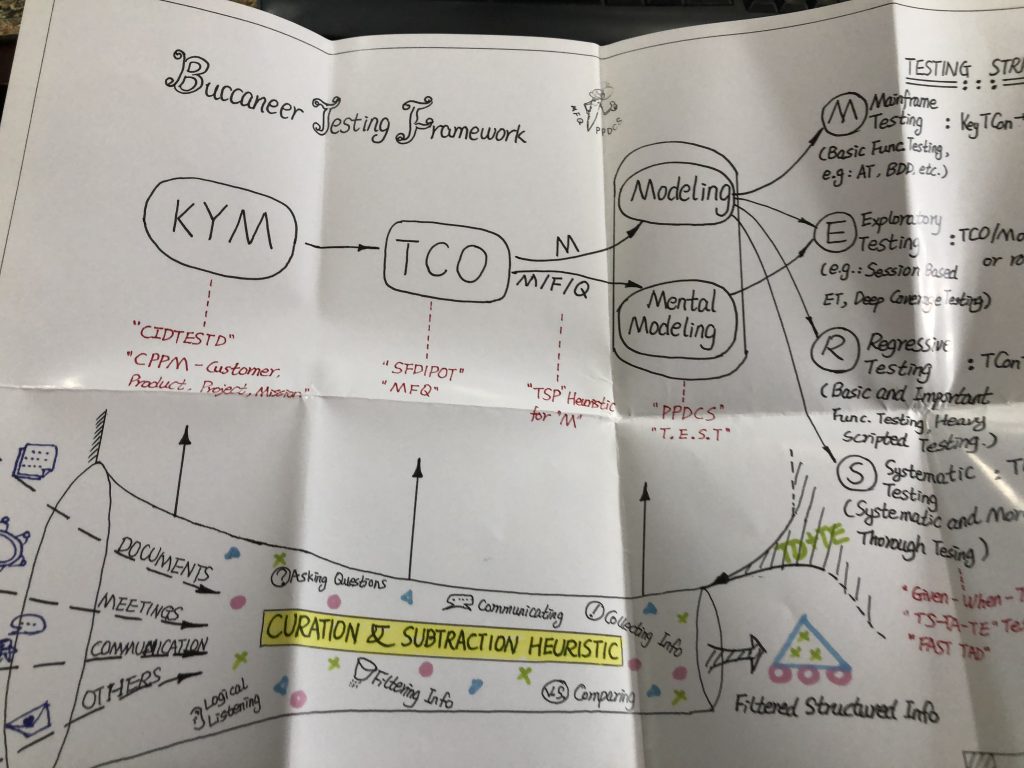 Buccaneer Testing Framework
MFQ
PPDCS
TESTING STR
KYM
TCO
M
M/F/Q
Modeling
Mental
Modeling
M
Mainframe
Testing : Key TCon →
(Basic Func Testing,
e.g: AT, BDD, etc.)
E
Exploratory
Testing : TCO/Mo
or
(e.g.: Session Based
ET, Deep Coverage Testing)
R
Regressive
Testing : TCon
(Basic and Important
Func. Testing, Heavy
Scripted Testing.)
S
Systematic :
Testing
(Systematic and Mor
Thorough Tesing)
"CIDTESTD"
"CPPM - Customer,
Product, Project, Mission"
"SFDIPOT"
"MFQ"
"TSP" Heuristic
for "M"
"PPDCS"
"T.E.S.T"
"Given - When - T
"TS-TA-TE" Te
"FAST TAD"
DOCUMENTS
MEETINGS
COMMUNICATION
OTHERS
? Asking Questions
Communicating
Collecting Info
CURATION & SUBTRACTION HEURISTIC
Logical
Listening
Filtering Info
VS Comparing
Filtered Structured Info